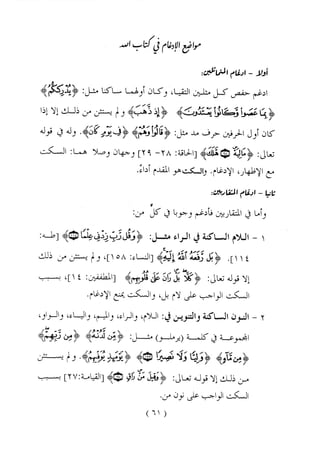 مواضع الإدغام في كتاب الله
أولا - ادغام المتماثلين:
ادغم حفص كل مثلين التقيا، وكان أولهما ساكنا مثل: ﴿يُدْرِككُّمُ﴾
﴿بِمَا عَصَوا وَّكَانُوا يَعْتَدُونَ﴾ ﴿إِذ ذَّهَبَ﴾ ولم يستثن من ذلك إلا إذا
كان أول الحرفين حرف مد مثل: ﴿قَالُوا وَهُمْ﴾ ﴿فِي يَوْمٍ كَانَ﴾. وله في قوله
تعالى: ﴿مَالِيَهْ ۝ هَلَكَ﴾ [الحاقة: ٢٨- ٢٩] وجهان وصلا هما: السكت
مع الإظهار، والإدغام. والسكت هو المقدم أداءً.
ثانيا - ادغام المتقاربين:
وأما في المتقاربين فأدغم وجوبا في كل من:
١ - اللام الساكنة في الراء مثل: ﴿وَقُل رَّبِّ زِدْنِي عِلْمًا ۝﴾ [طه:
١١٤]. ﴿بَل رَّفَعَهُ اللَّهُ إِلَيْهِ﴾ [النساء: ١٥٨]، ولم يستثن من ذلك
إلا قوله تعالى: ﴿كَلَّا بَلْ رَانَ عَلَى قُلُوبِهِم﴾ [المطففين: ١٤]، بسبب
السكت الواجب على لام بل، والسكت يمنع الإدغام.
٢ - النون الساكنة والتنوين في: اللام، والراء، والميم، والياء، والواو،
المجموعة في كلمة (يرملو) مثل: ﴿مِن لَّدُنْهُ﴾ ﴿مِن رَّبِّهِمْ﴾
﴿مِن مَّاءٍ﴾ ﴿وَلِيًّا وَلَا نَصِيرًا ۝﴾ ﴿يَوْمَئِذٍ يُوَفِّيهِمُ﴾. ولم يستثن
من ذلك إلا قوله تعالى: ﴿وَقِيلَ مَنْ رَاقٍ ۝﴾ [القيامة: ٢٧] بسبب
السكت الواجب على نون من.
(٦١)